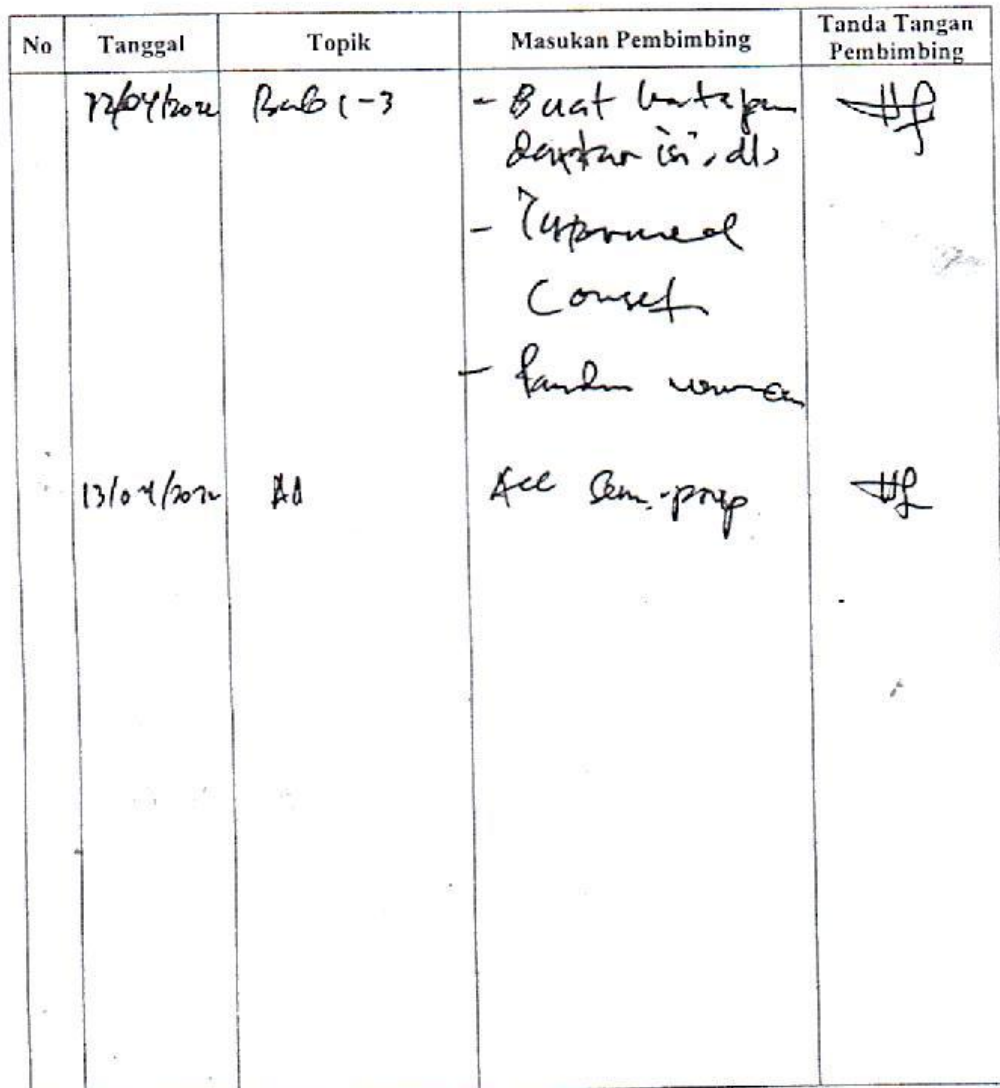 No Tanggal Topik Masukan Pembimbing Tanda Tangan Pembimbing
12/04/2022 Bab 1-3 - Buat
daftar isi, dll
- Informed
Consent
-
13/04/2022 Acc Sem.-prop